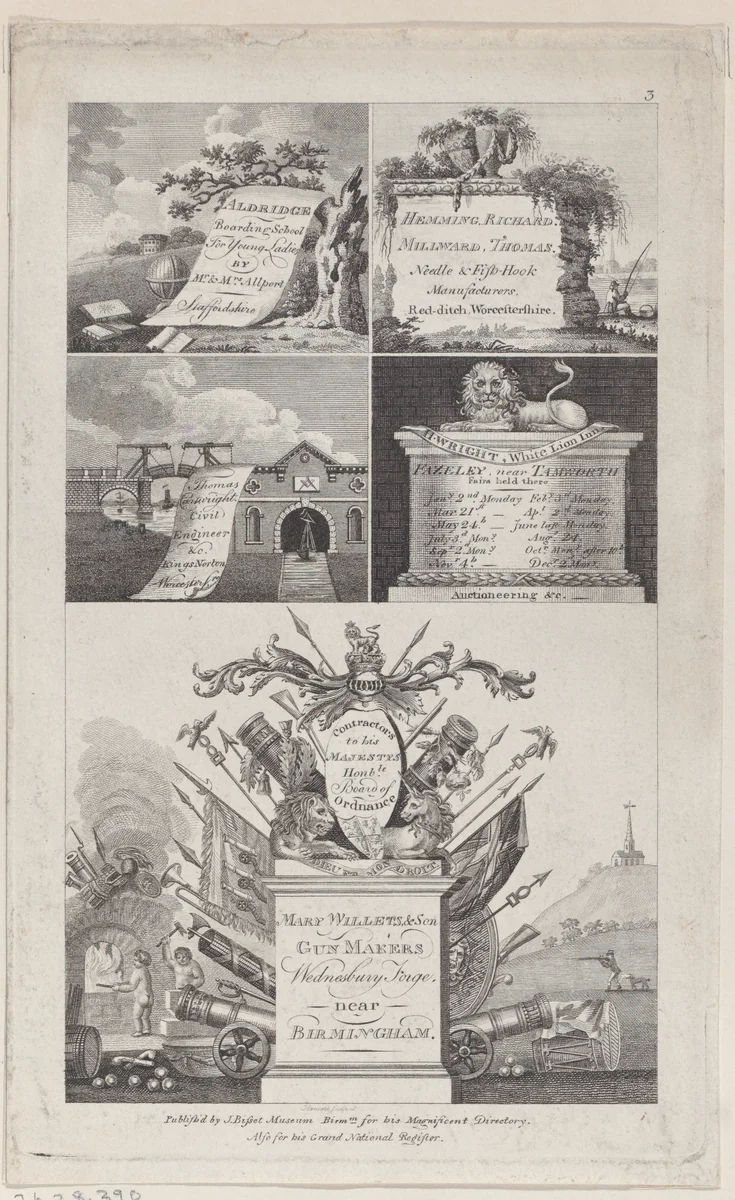 3
ALDRIDGE
Boarding School
For Young Ladies
BY
Mr. & Mrs. Allport
Staffordshire
HEMMING, RICHARD.
MILLWARD, THOMAS.
Needle & Fiſh-Hook
Manufacturers,
Red-ditch, Worceſterſhire.
Thomas
Cartwright,
Civil
Engineer
&c.
Kings Norton
Worcester
H. WRIGHT, White Lion Inn
FAZELEY, near TAMWORTH
Fairs held there
Jany. 2nd. Monday Feby. 3d. Monday.
Mar 21st — Apl. 2d. Monday.
May 24th — June laſt Monday.
July 3d. Mony. Aug. 24.
Sepr. 2. Mony. Octr. Mony. after 10th
Novr. 4th — Decr. 2. Mony.
Auctioneering &c. —
Contractors
to his
MAJESTYS
Honble
Board of
Ordnance
DIEU ET MON DROIT
MARY WILLETS, & Son
GUN MAKERS
Wednesbury Forge.
near
BIRMINGHAM.
Publiſh'd by J. Biſſet Muſeum Birmm for his Magnificent Directory.
Alſo for his Grand National Regiſter.